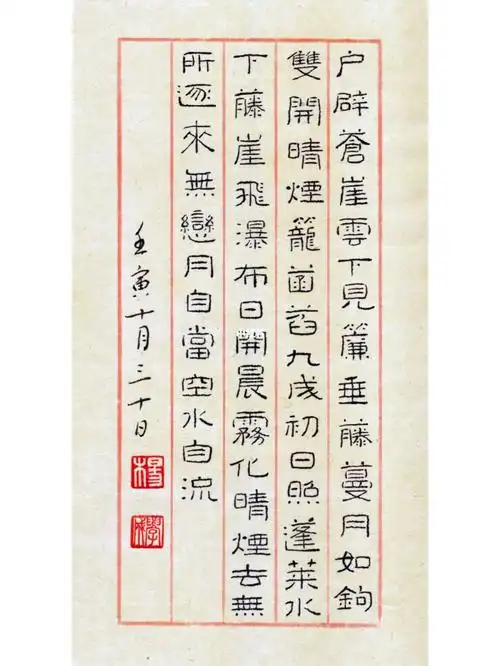 户辟蒼崖雲下見簾垂藤蔓月如鉤
雙開晴煙籠菡萏九成初日照蓬萊水
下藤崖飛瀑布日開晨霧化晴煙去無
所逐來無戀月自當空水自流
壬寅十月三十日
楊